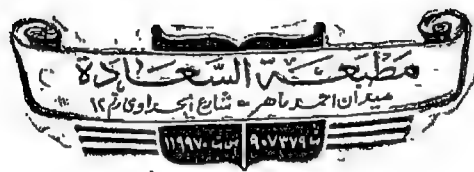 مطبعة السعادة
ميدان احمد ماهر - شارع الجداوى رقم ١٢
ت ٩٠٧٣٧٩ س ت ١١٩٩٧٠